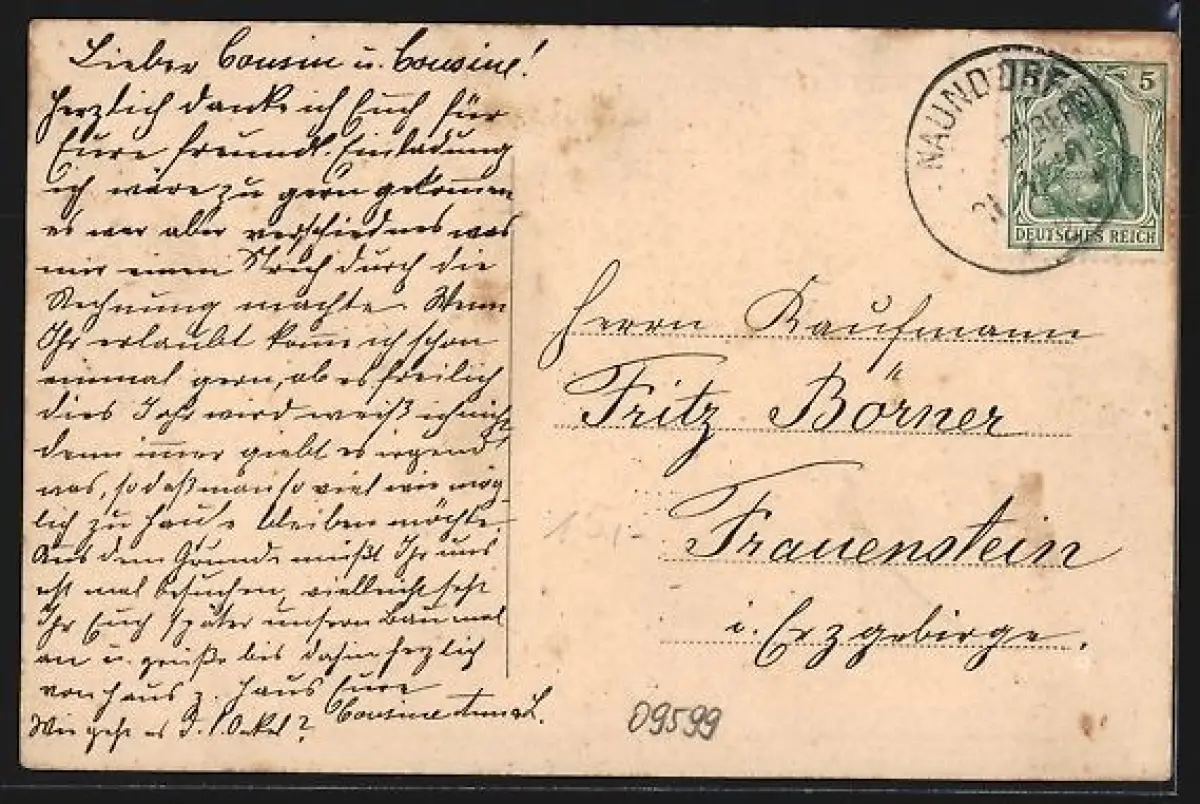 Lieber Cousin u. Cousine!
Herzlich danke ich Euch für
Eure freundl. Einladung
ich wäre zu gern gekommen
es war aber verschiednes was
mir einen Strich durch die
Rechnung machte. Wenn
Ihr erlaubt komme ich schon
einmal gern, ob es freilich
dies Jahr wird weiß ich nicht
denn immer giebt es irgend
was, so daß man so viel wie mög
lich zu Hause bleiben möchte.
Aus dem Grunde müßt Ihr uns
erst mal besuchen, vielleicht seht
Ihr Euch später unsern Bau mal
an u. grüße bis dahin herzlich
von Haus z. Haus Eure
Cousine
Wie geht es d. l. Onkel?
NAUNDORF
5
DEUTSCHES REICH
Herrn Kaufmann
Fritz Börner
Frauenstein
i. Erzgebirge.
09599